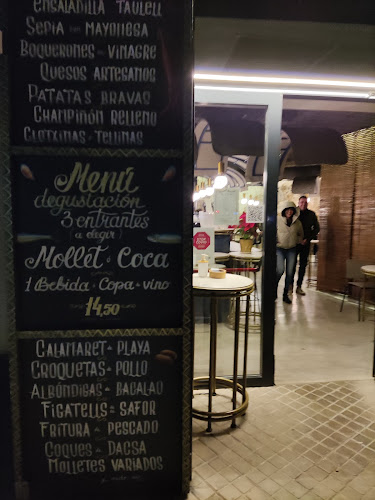 ENSALADILLA TAULELL
SEPIA CON MAYONESA
BOQUERONES EN VINAGRE
QUESOS ARTESANOS
PATATAS BRAVAS
CHAMPIÑON RELLENO
CLOTXINAS - TELLINAS
Menú
degustación
3 entrantes
a elegir
Mollet ó Coca
1 Bebida ó Copa de vino
14,50
CALAMARET DE PLAYA
CROQUETAS DE POLLO
ALBÓNDIGAS DE BACALAO
FIGATELLS DE SAFOR
FRITURA DE PESCADO
COQUES DE DACSA
MOLLETES VARIADOS